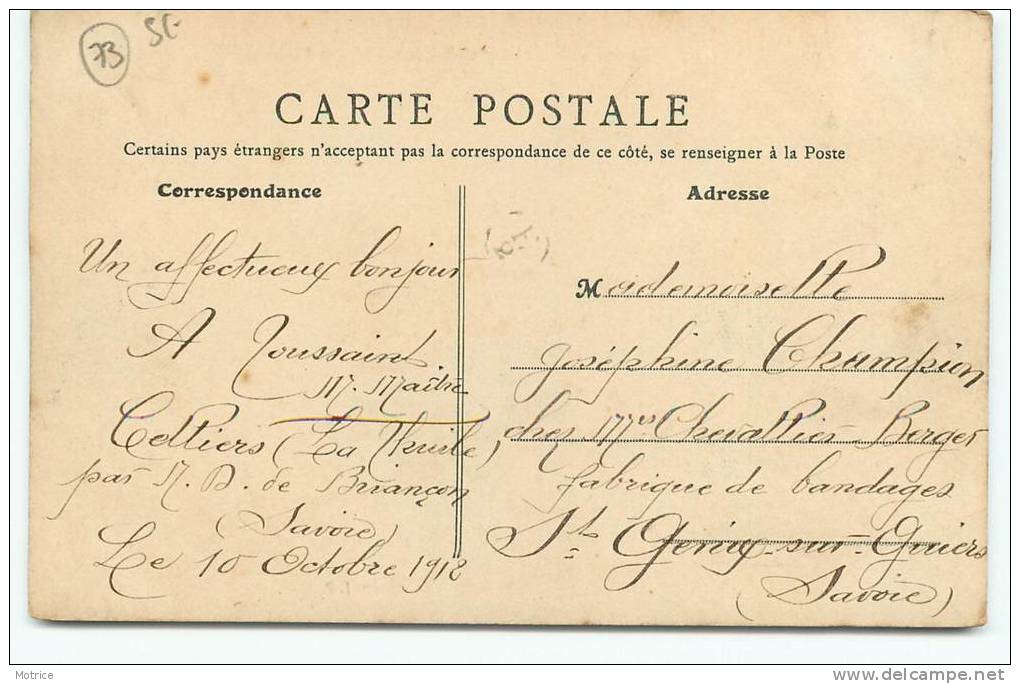 73 SE
CARTE POSTALE
Certains pays étrangers n'acceptant pas la correspondance de ce côté, se renseigner à la Poste
Correspondance
Un affectueux bonjour
A Toussaint
M. Maître
Celliers (La Thuile)
par N. D. de Briançon
(Savoie)
Le 10 Octobre 1912
Adresse
Mademoiselle
Joséphine Champion
chez Mrs Chevallier Berger
fabrique de bandages
St Genix-sur-Guiers
(Savoie)
Motrice
www.delcampe.net